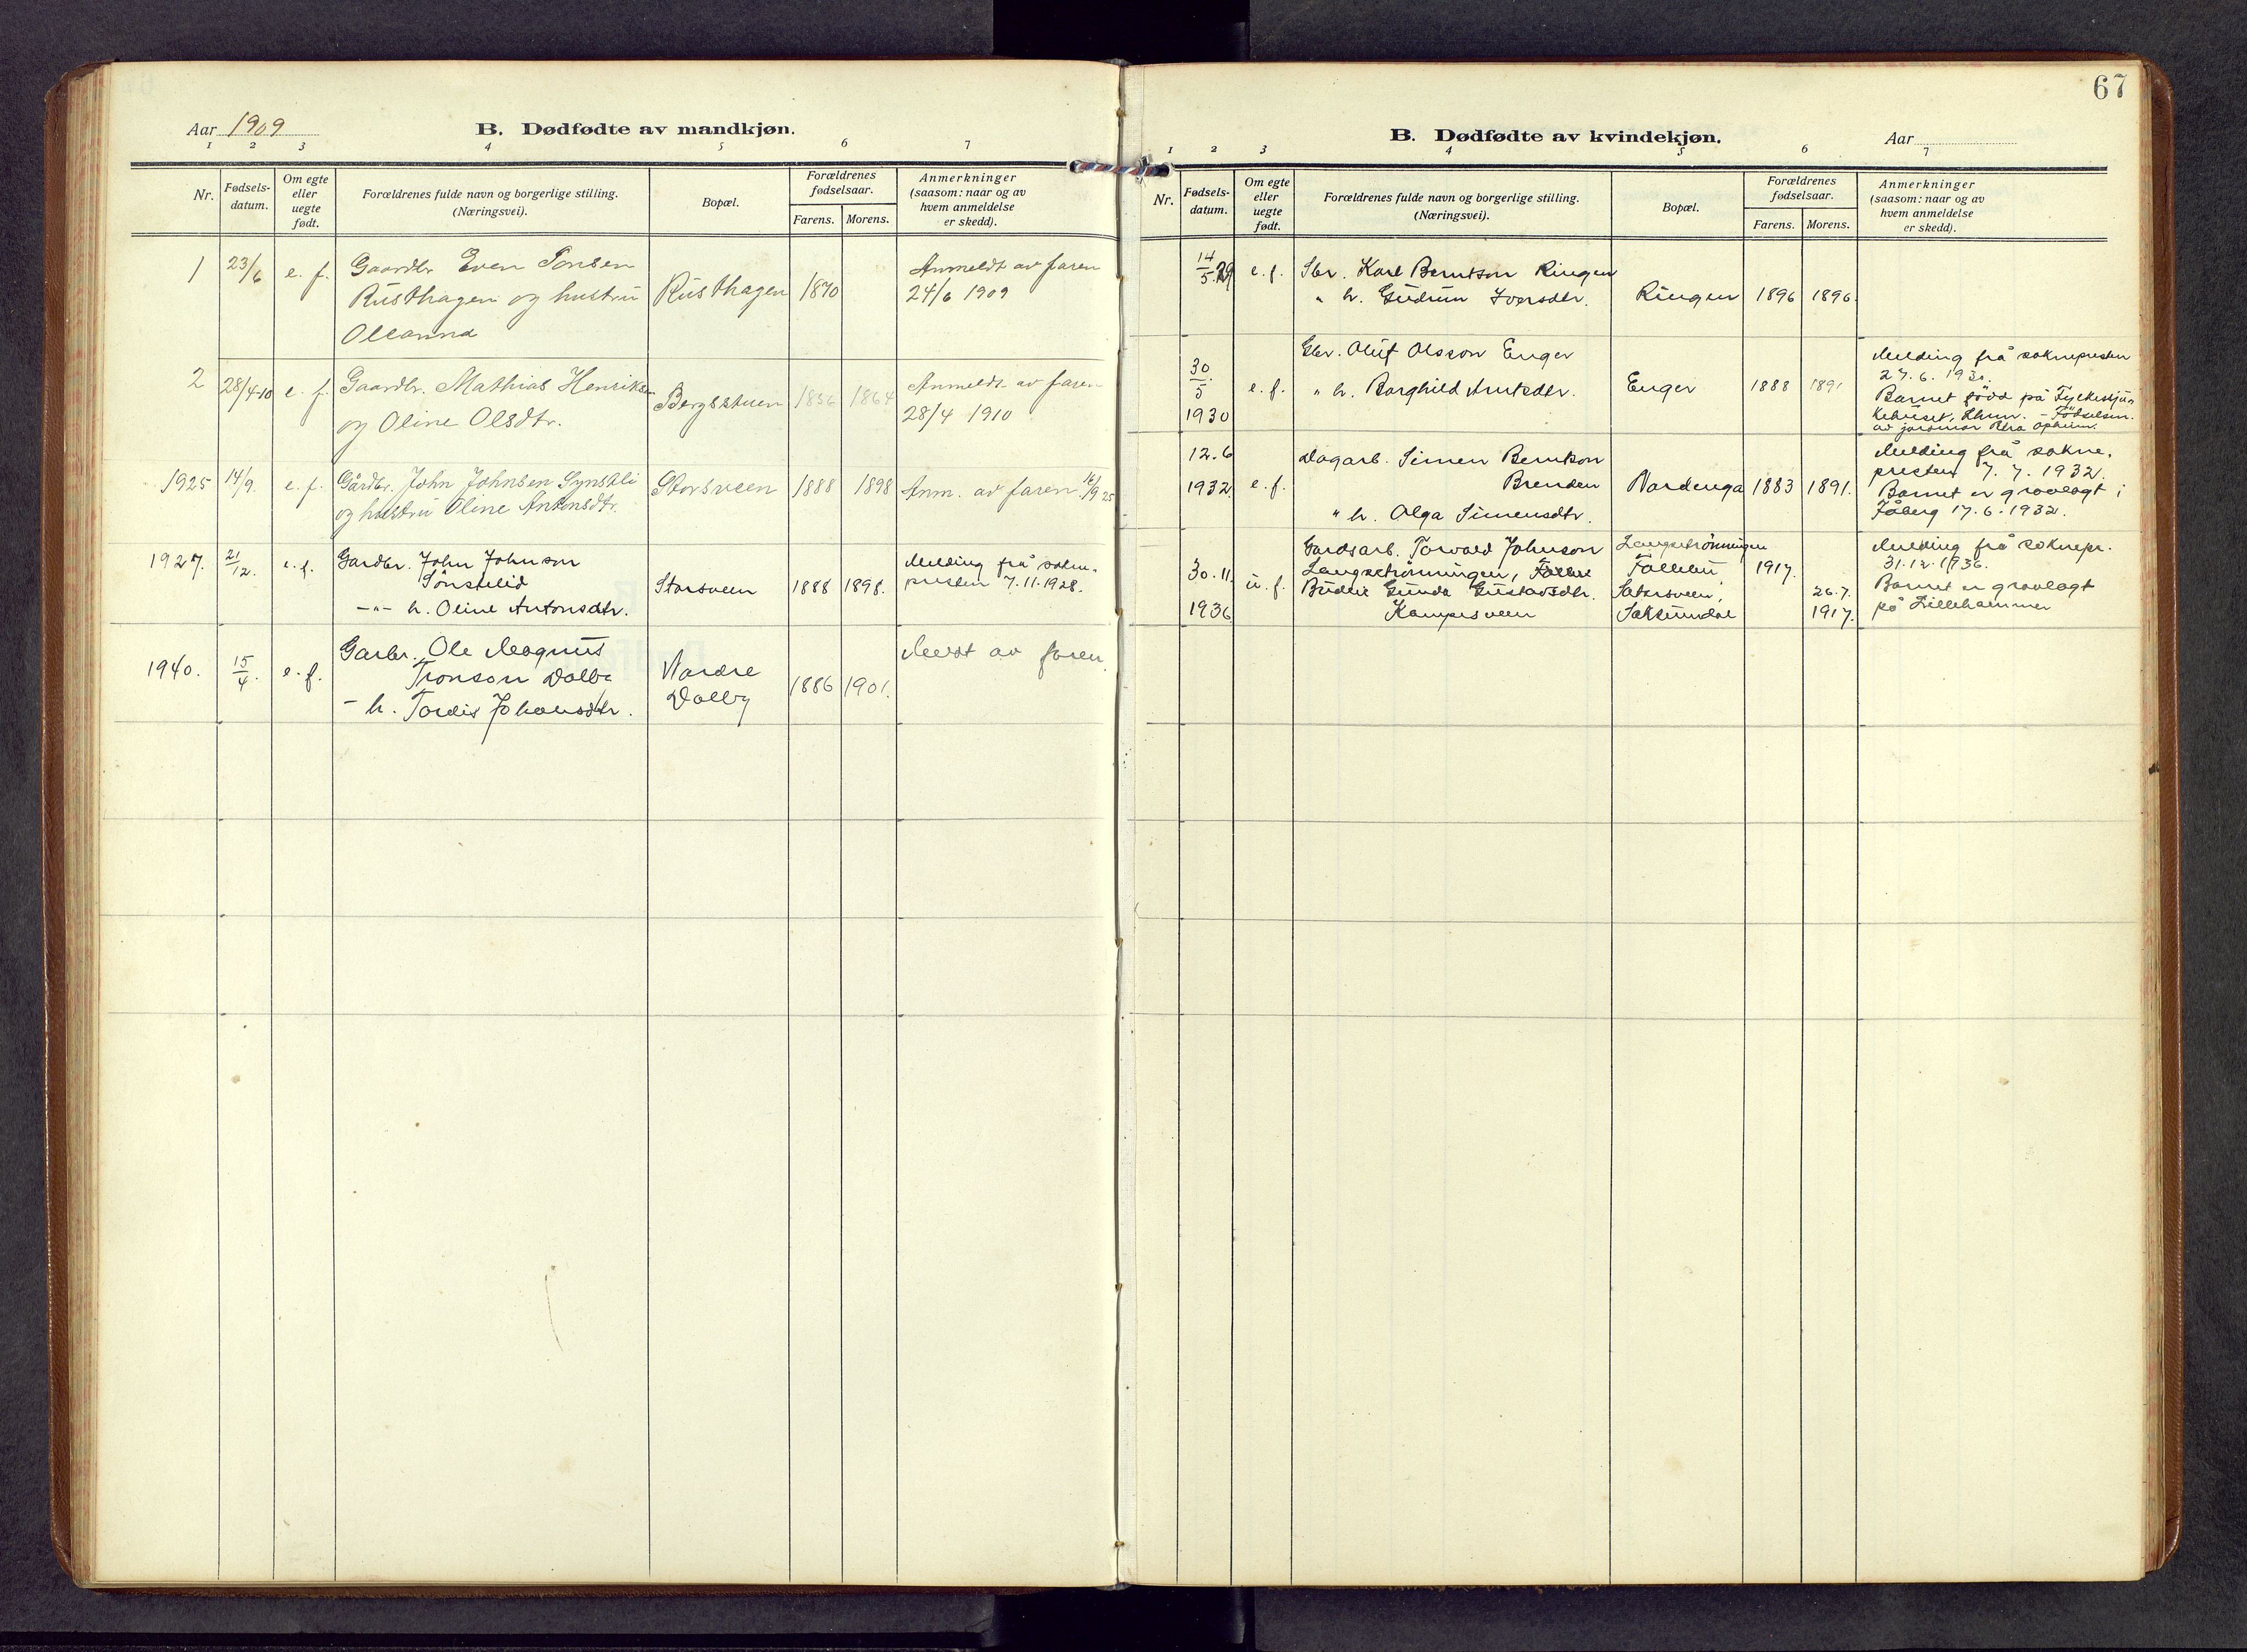 67
Aar 1909
B. Dødfødte av mandkjøn.
1 2 3 4 5 6 7
Nr.
Fødsels-
datum.
Om egte
eller
uegte
født.
Forældrenes fulde navn og borgerlige stilling.
(Næringsvei).
Bopæl.
Forældrenes
fødselsaar.
Farens. Morens.
Anmerkninger
(saasom: naar og av
hvem anmeldelse
er skedd).
1 23/6 e. f. Gaardbr. Even
Rusthagen og hustru Rusthagen 1870
Anmeldt av faren
24/6 1909
2 28/4-10 e. f. Gaardbr. Mathias Henriksen
og Oline Olsdtr.
Bergsstuen 1864
Anmeldt av faren
28/4 1910
1925 14/9 e. f. Gårdbr. John Johnsen Synstli
og hustru Oline Antonsdtr.
Storsveen 1888 1898 Anm. av faren 16/9 25
1927. 21/12. e. f. Gardbr. John Johnson
Sönstelid
-"- h. Oline Antonsdtr.
Storsveen 1888 1898.
Melding frå sokne-
presten 7.11.1928.
1940. 15/4. e. f. Garbr. Ole Magnus
Tronson Dalby
- h. Tordis Johansdtr.
Nordre
Dalby
1886 1901.
Meldt av faren.
B. Dødfødte av kvindekjøn.
Aar
1 2 3 4 5 6 7
Nr.
Fødsels-
datum.
Om egte
eller
uegte
født.
Forældrenes fulde navn og borgerlige stilling.
(Næringsvei).
Bopæl.
Forældrenes
fødselsaar.
Farens. Morens.
Anmerkninger
(saasom: naar og av
hvem anmeldelse
er skedd).
14/5.29 e. f. Karl Berntson Ringen
" h. Gudrun Iversdtr.
Ringen 1896 1896.
30/5
1930
e. f. Gbr. Oluf Olsson Enger
" h. Borghild Amtsdtr.
Enger 1888 1891
Melding frå soknepresten
27.6.1930.
Barnet född på Fylkessju-
kehuset, Lhmr.
av jordmor Opheim.
12.6
1932. e. f. Dagarb. Simen Berntson
Brenden
" h. Olga Simensdtr.
Nordenga 1883 1891.
Melding frå sokne-
presten 7.7.1932.
Barnet er gravlagt i
Fåberg 17.6.1932.
30.11.
1936
u. f. Gardsarb. Torvald Johnson
Langsetrönningen,
Budeie Gunda Gustavsdtr.
Kampesveen
Langsetrönningen
Follebu
Satersveen,
Saksumdal
1917.
26.7.
1917.
Melding frå soknepr.
31.12.1936.
Barnet er gravlagt
på Lillehammer